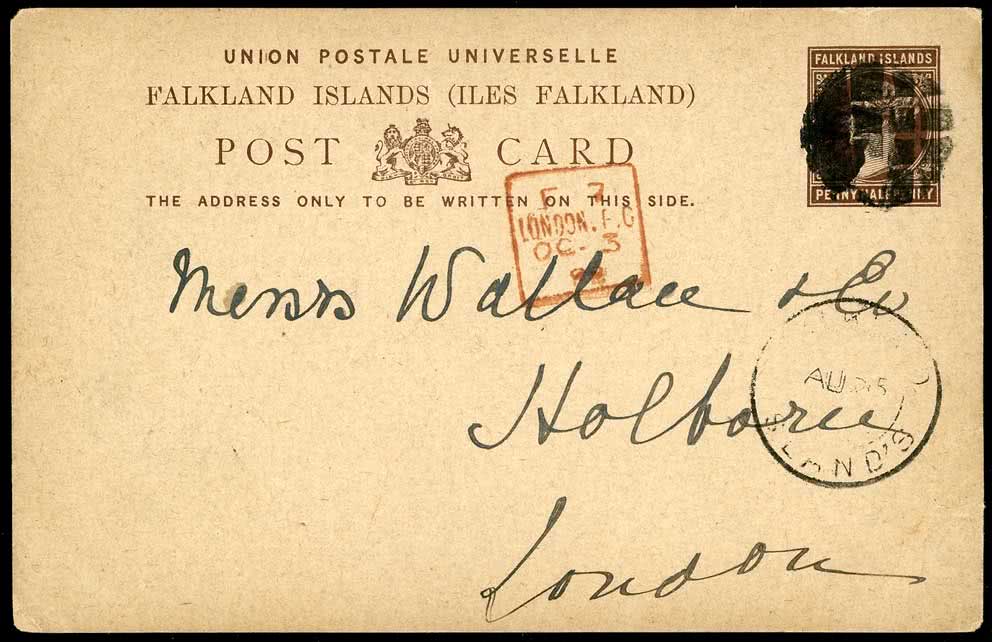 UNION POSTALE UNIVERSELLE
FALKLAND ISLANDS (ILES FALKLAND)
POST CARD
THE ADDRESS ONLY TO BE WRITTEN ON THIS SIDE.
FALKLAND ISLANDS
PENNY HALFPENNY
F 7
LONDON. F.C
OC 3
Messrs Wallace & Co
Holborn
London
AU 25